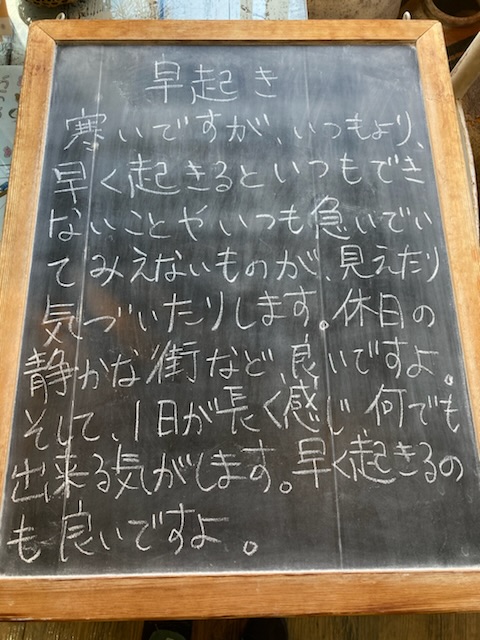 早起き
寒いですが、いつもより、
早く起きるといつもでき
ないことやいつも急いでい
てみえないものが、見えたり
気づいたりします。休日の
静かな街など、良いですよ。
そして、1日が長く感じ、何でも
出来る気がします。早く起きるの
も良いですよ。